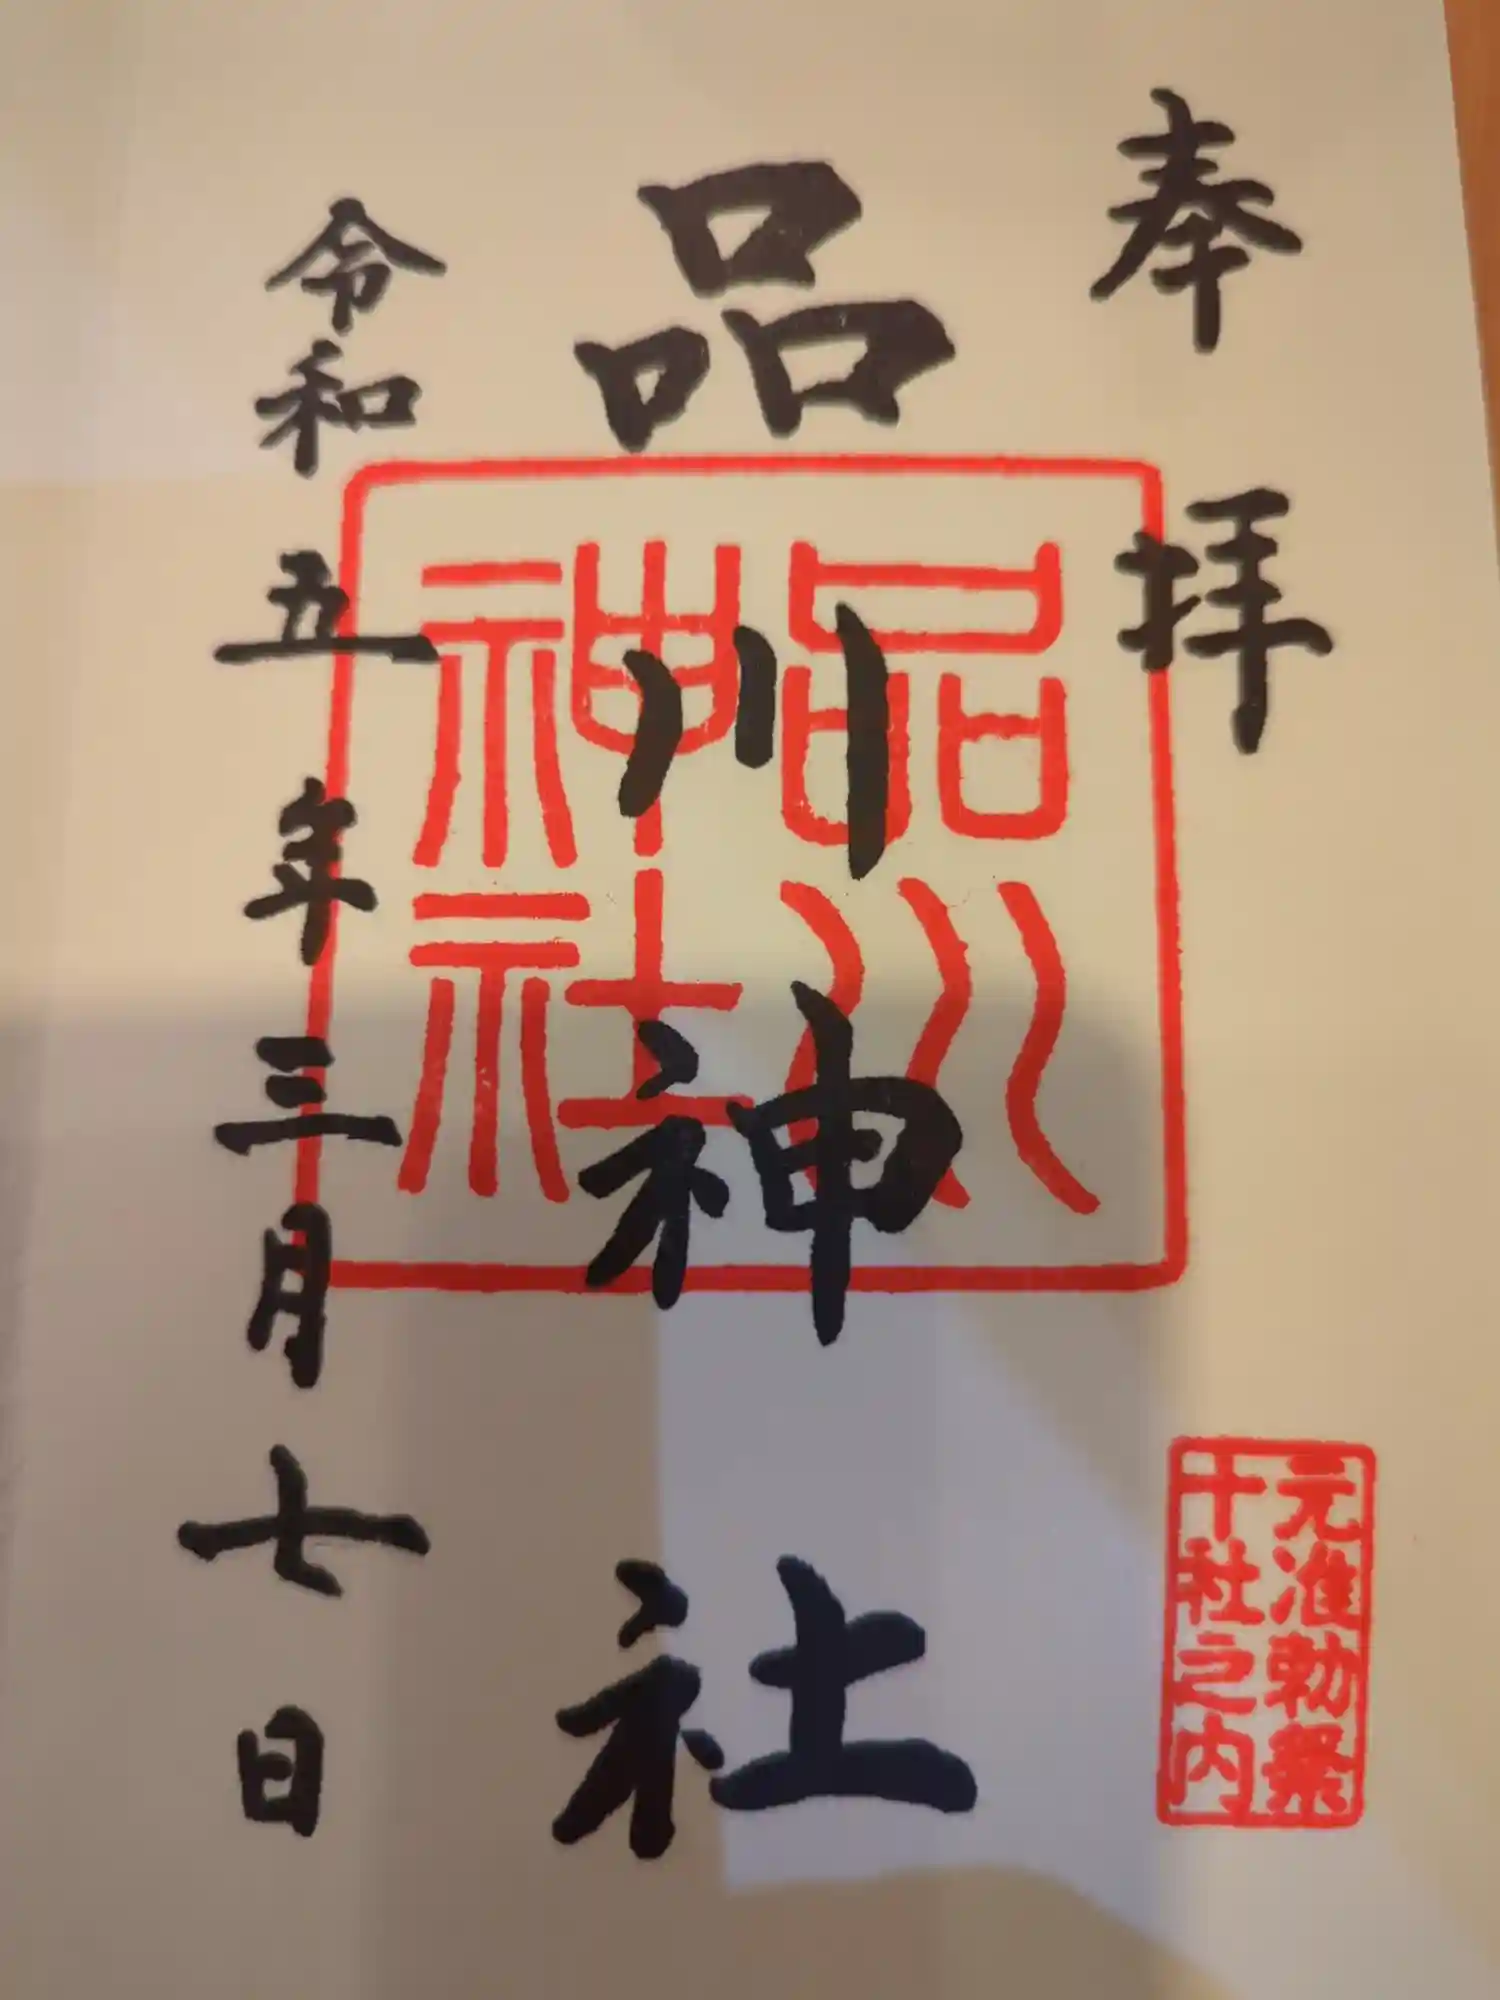 奉拝
元准勅祭
十社之内
品川神社
品川
神社
令和五年三月七日